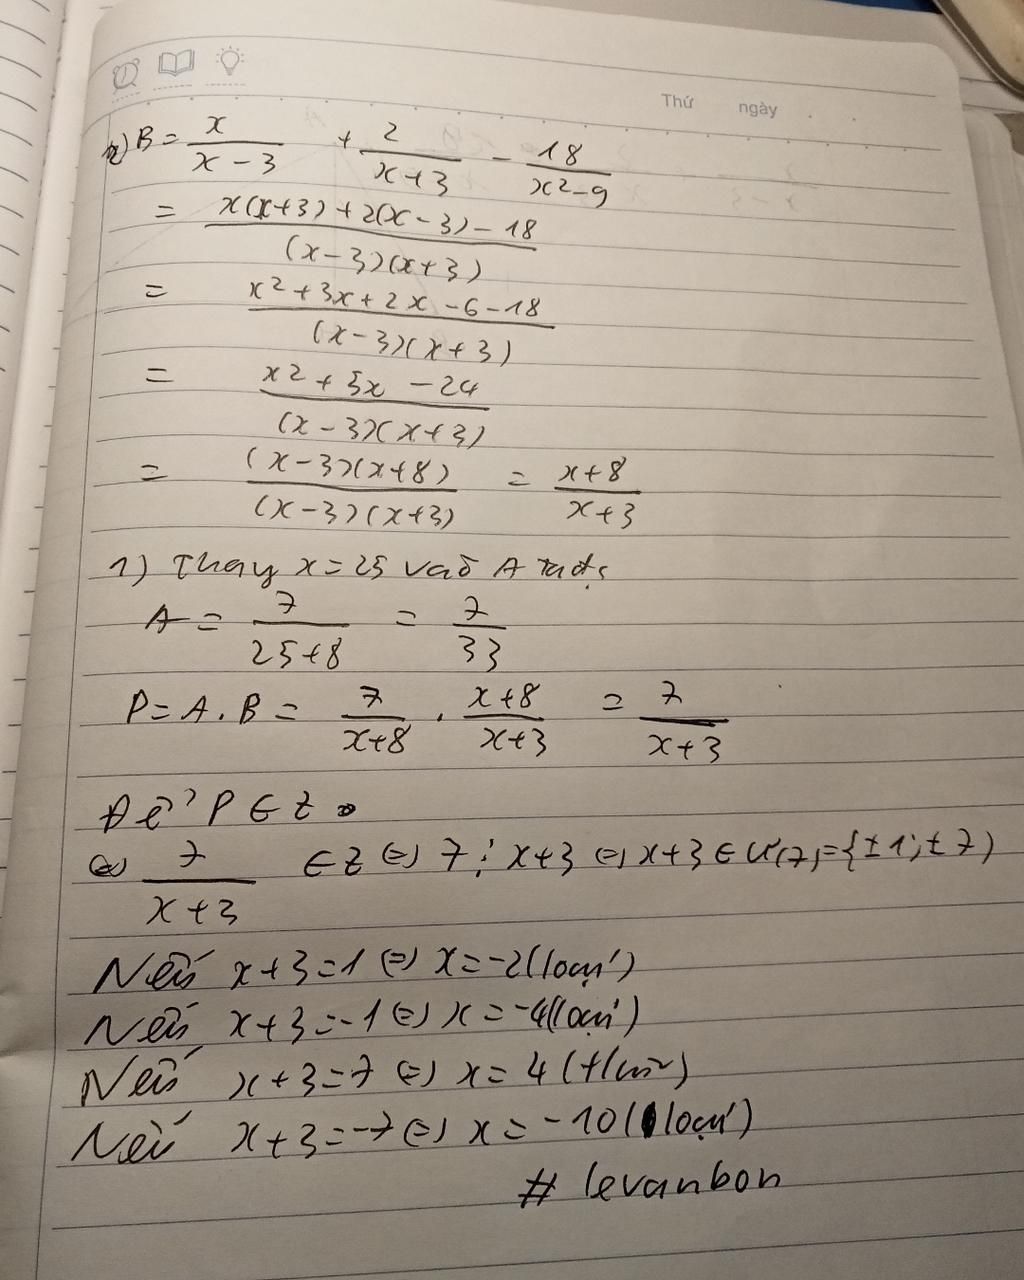 Thứ ngày
2) B = x/(x-3) + 2/(x+3) - 18/(x²-9)
= (x(x+3)+2(x-3)-18)/((x-3)(x+3))
= (x²+3x+2x-6-18)/((x-3)(x+3))
= (x²+5x-24)/((x-3)(x+3))
= ((x-3)(x+8))/((x-3)(x+3)) = (x+8)/(x+3)
1) Thay x=25 vaò A ta đc
A = 7/(25+8) = 7/33
P = A.B = 7/(x+8) . (x+8)/(x+3) = 7/(x+3)
Để P ∈ Z
⇔ 7/(x+3) ∈ Z ⇔ 7 ⋮ x+3 ⇔ x+3 ∈ Ư(7)={±1;±7)
Nếu x+3=1 ⇔ x=-2(loại)
Nếu x+3=-1 ⇔ x=-4(loại)
Nếu x+3=7 ⇔ x=4 (t/mãn)
Nếu x+3=-7 ⇔ x=-10(loại)
# levanbon